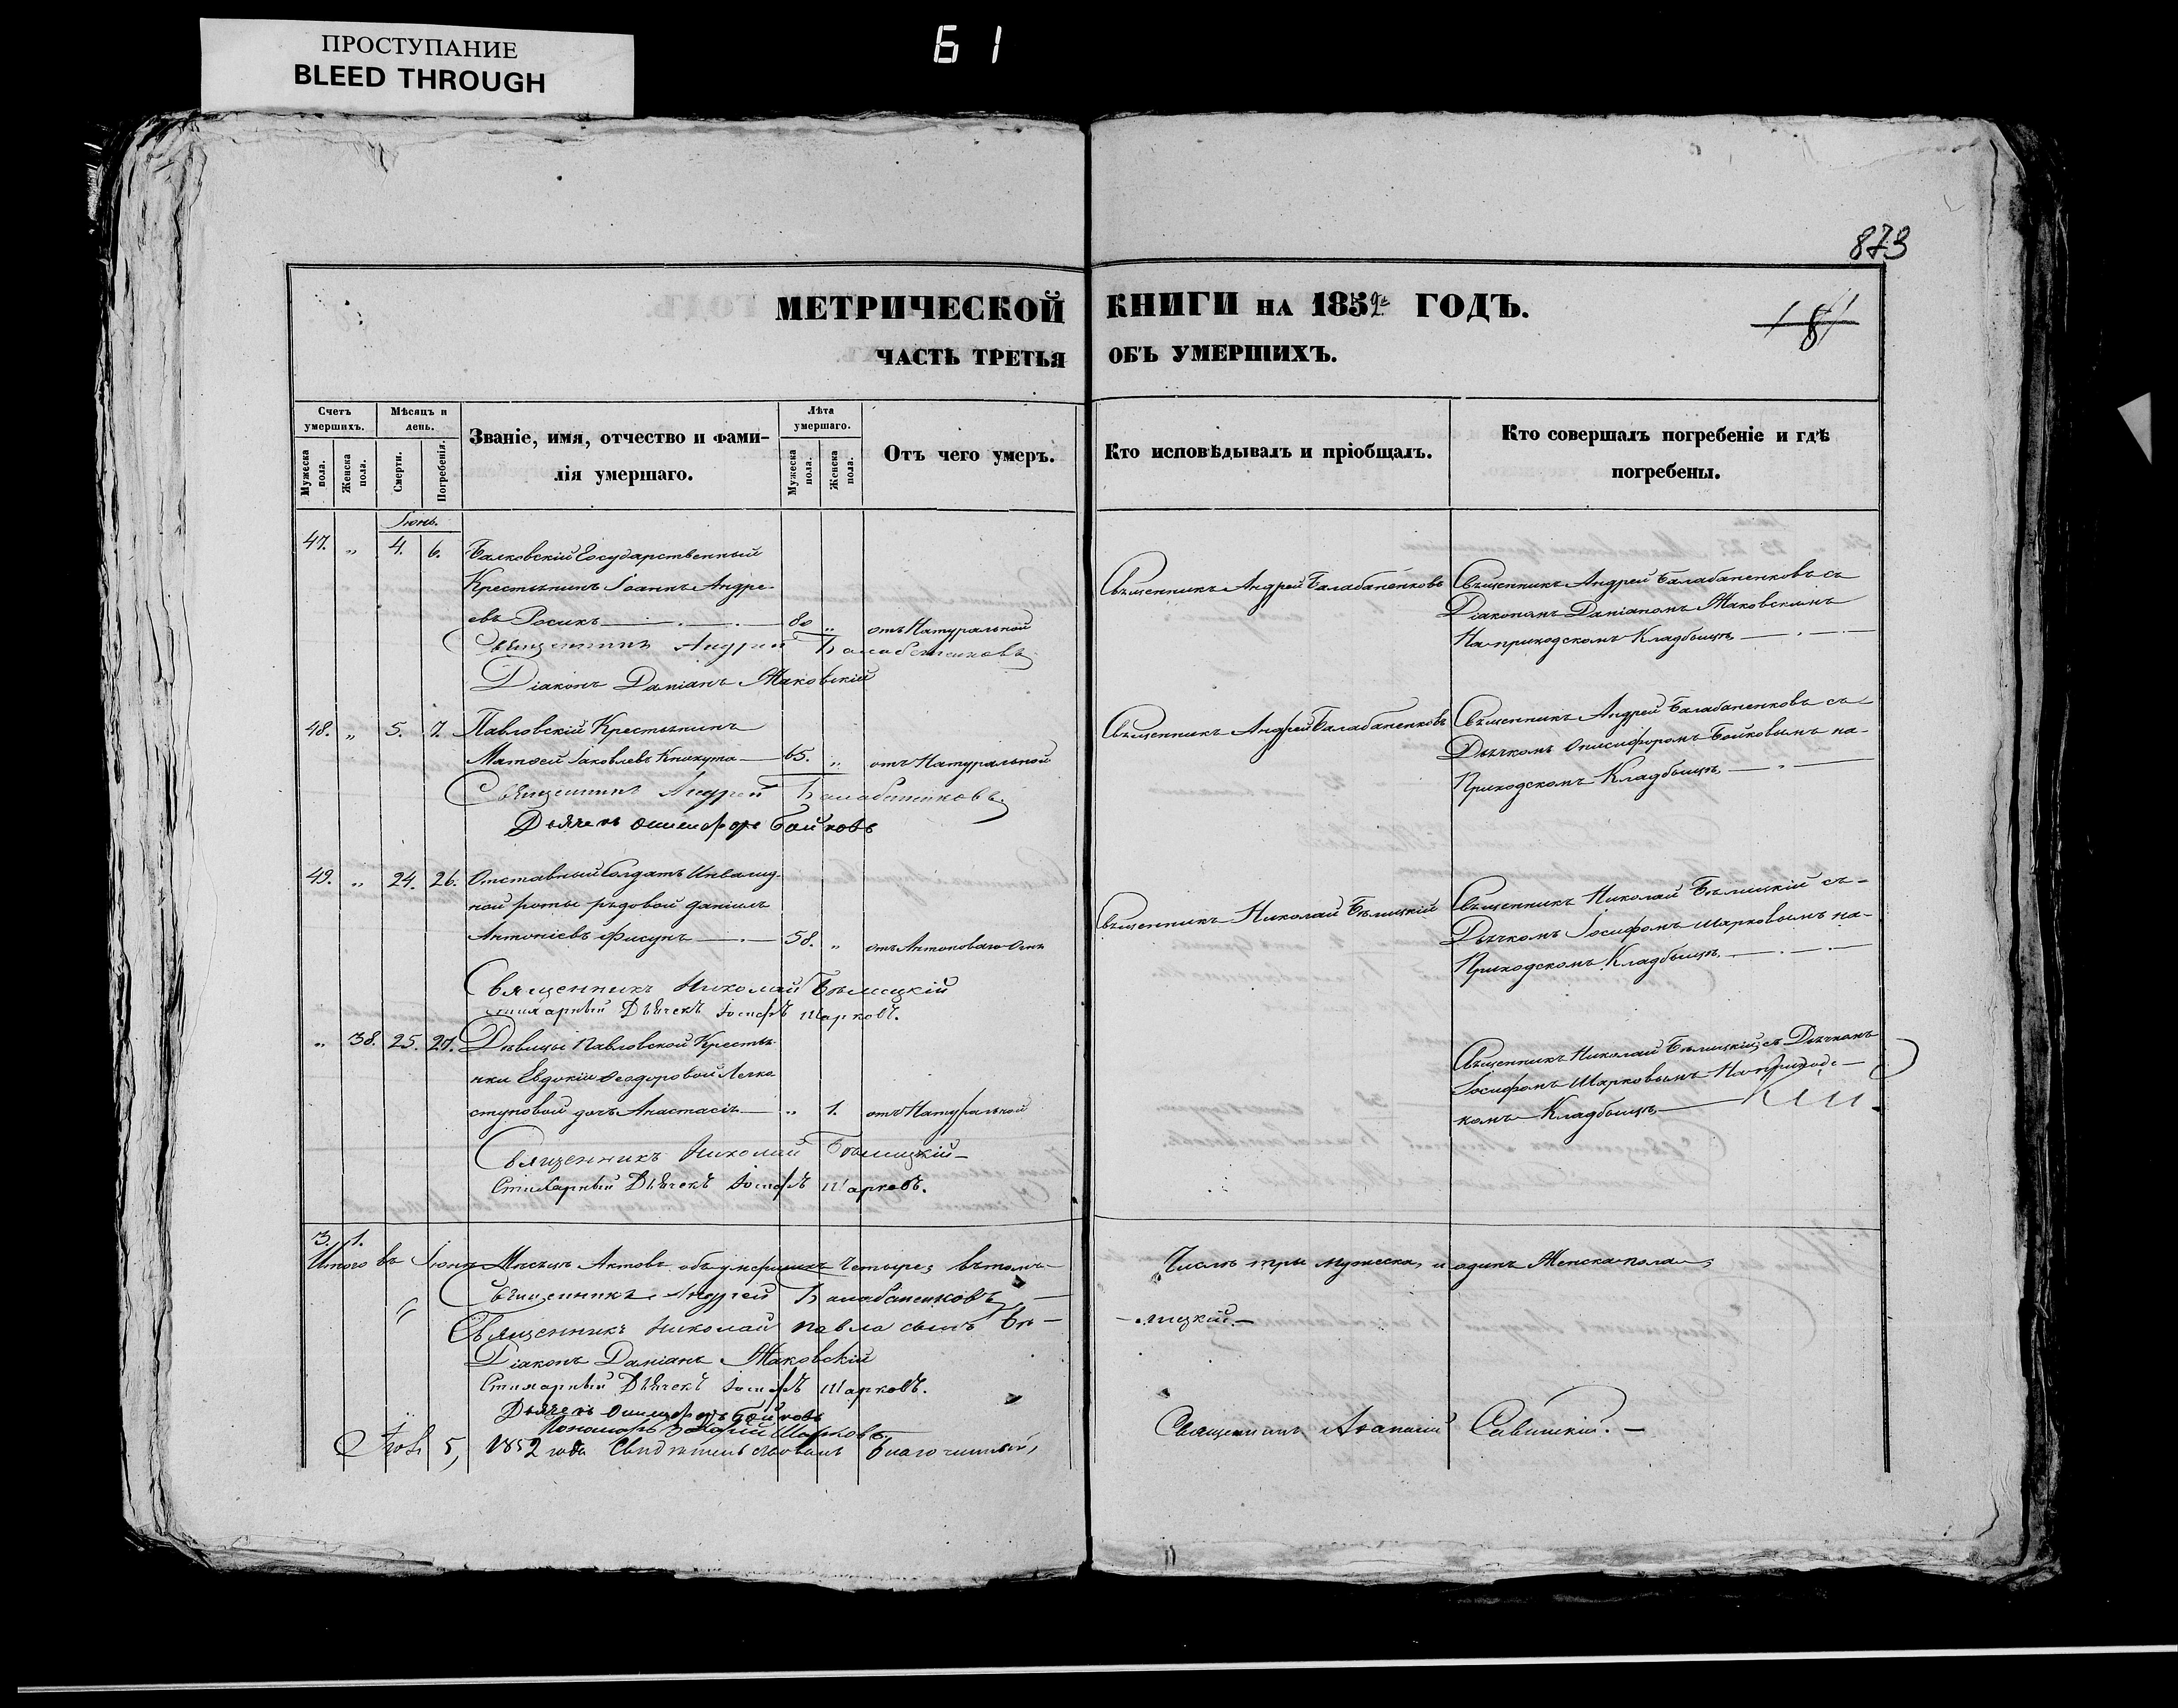 ПРОСТУПАНИЕ
BLEED THROUGH
61
873
МЕТРИЧЕСКОЙ КНИГИ НА 1852 ГОДЪ.
181
ЧАСТЬ ТРЕТЬЯ ОБЪ УМЕРШИХЪ.
Счетъ умершихъ.
Мужеска пола.
Женска пола.
Мѣсяцъ и день.
Смерти.
Погребенія.
Званіе, имя, отчество и фами-
лія умершаго.
Лѣта умершаго.
Мужеска пола.
Женска пола.
Отъ чего умеръ.
Кто исповѣдывалъ и пріобщалъ.
Кто совершалъ погребеніе и гдѣ
погребены.
Іюнь.
47. „ 4. 6. Балковскій Государственный
Крестьянинъ Іоаннъ Андре-
евъ Росикъ 80 „ отъ Натуральной
Священникъ Андрей Балабаненковъ
Священникъ Андрей Балабаненковъ съ
Діакономъ Даміаномъ Маковскимъ
На приходскомъ Кладбищѣ
Священникъ Андрей Балабаненковъ
Діаконъ Даміанъ Маковскій
48. „ 5. 7. Павловскій Крестьянинъ
Матѳей Іаковлевъ 65. „ отъ Натуральной
Священникъ Андрей Балабаненковъ
Священникъ Андрей Балабаненковъ съ
Дьячкомъ Онисифоромъ Бойковымъ на
Приходскомъ Кладбищѣ
Священникъ Андрей Балабаненковъ.
Дьячекъ Онисифоръ Бойковъ
49. „ 24. 26. Отставный Солдатъ Инвалид-
ной роты рядовой Даніилъ
Антоніевъ Фисунъ 58. „ отъ Антоноваго Огня
Священникъ Николай Бѣлицкій
Священникъ Николай Бѣлицкій съ
Дьячкомъ Іосифомъ Шарковымъ на
Приходскомъ Кладбищѣ
Священникъ Николай Бѣлицкій
Стихарный Дьячекъ Іосифъ Шарковъ.
„ 38. 25. 27. Дѣвицы Павловской Крестья-
нки Евдокіи Ѳеодоровой Легко-
ступовой дочь Анастасія „ 1. отъ Натуральной
Священникъ Николай Бѣлицкій съ Дьячкомъ
Іосифомъ Шарковымъ На приходс-
комъ Кладбищѣ
Священникъ Николай Бѣлицкій
Стихарный Дьячекъ Іосифъ Шарковъ.
3. 1.
Итого въ Іюнѣ Мѣсяцѣ Актовъ объ умершихъ Четыре, въ томъ Числѣ три мужеска, и одинъ Женска пола
Священникъ Андрей Балабаненковъ
Священникъ Николай Павла сынъ Бѣ-
лицкій.
Діаконъ Даміанъ Маковскій
Стихарный Дьячекъ Іосифъ Шарковъ.
Дьячекъ Онисифоръ Бойковъ
Пономарь Шарковъ.
5, 1852 года Свидѣтельствовалъ Благочинный, Священникъ Аѳанасій Савицкій.